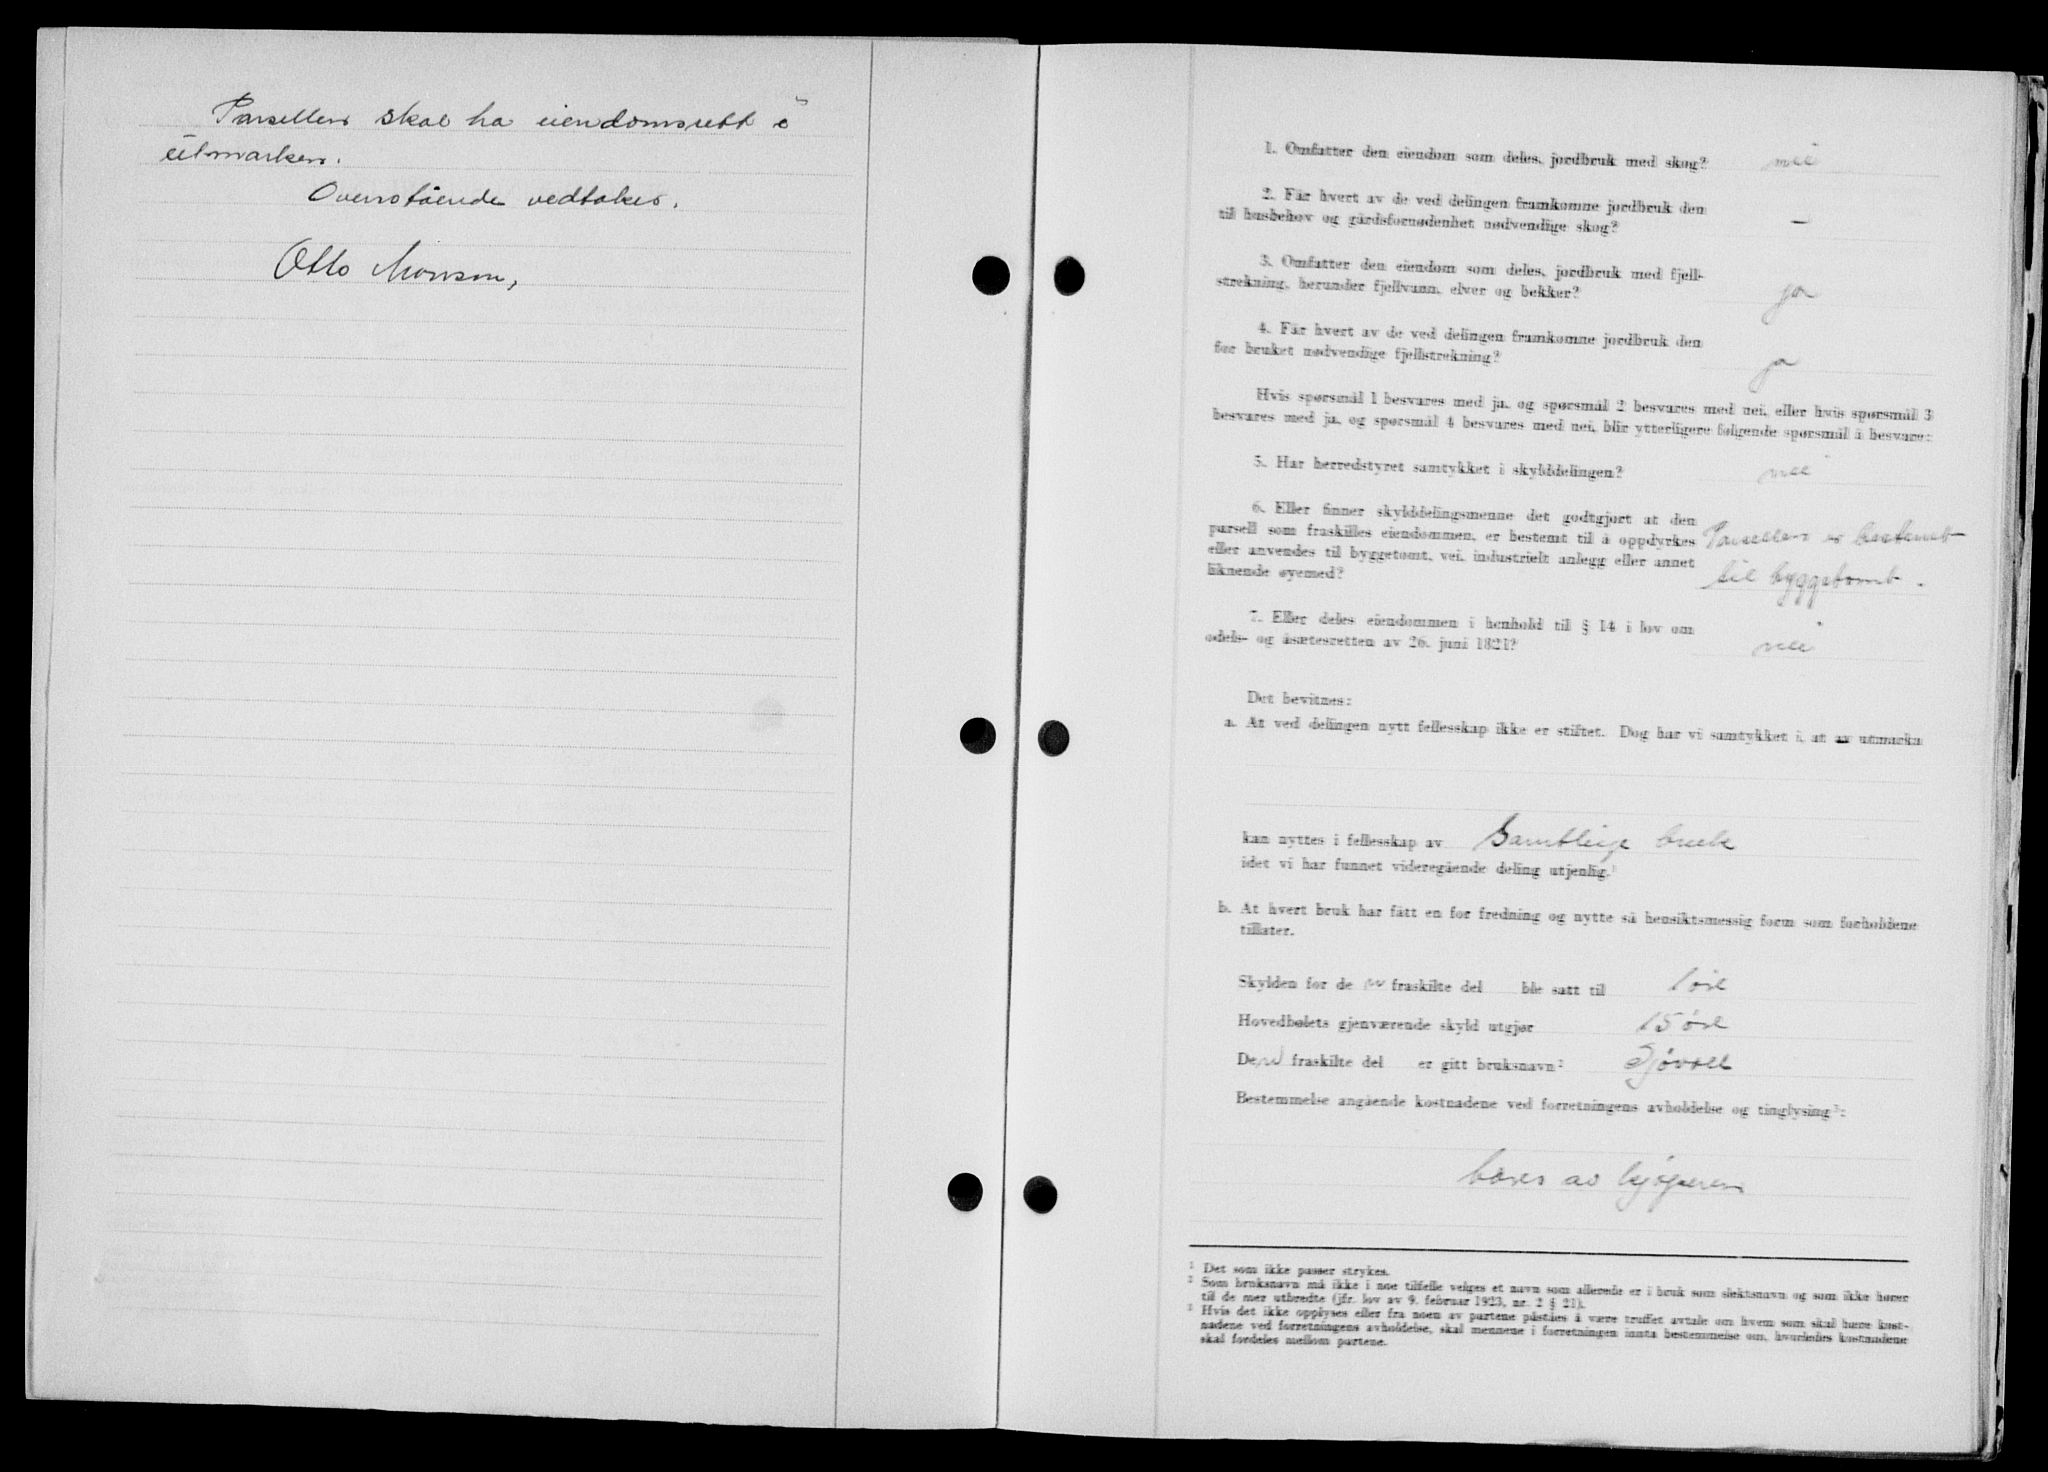 Parsellen skal ha eiendomsrett i
utmarken.
Overstående vedtakes.
Otto Monsen,
1. Omfatter den eiendom som deles, jordbruk med skog? nei
2. Får hvert av de ved delingen framkomne jordbruk den
til husbehov og gårdsfornødenhet nødvendige skog? –
3. Omfatter den eiendom som deles, jordbruk med fjell-
strekning, herunder fjellvann, elver og bekker? ja
4. Får hvert av de ved delingen framkomne jordbruk den
for bruket nødvendige fjellstrekning? ja
Hvis spørsmål 1 besvares med ja, og spørsmål 2 besvares med nei, eller hvis spørsmål 3
besvares med ja, og spørsmål 4 besvares med nei, blir ytterligere følgende spørsmål å besvare:
5. Har herredstyret samtykket i skylddelingen? nei
6. Eller finner skylddelingsmenne det godtgjort at den
parsell som fraskilles eiendommen, er bestemt til å oppdyrkes Parsellen er bestemt
eller anvendes til byggetomt, vei, industrielt anlegg eller annet
liknende øyemed? til byggetomt.
7. Eller deles eiendommen i henhold til § 14 i lov om
odels- og åsetesretten av 26. juni 1821? nei
Det bevitnes:
a. At ved delingen nytt fellesskap ikke er stiftet. Dog har vi samtykket i, at av utmarka
kan nyttes i fellesskap av Samtlige bruk
idet vi har funnet videregående deling utjenlig.¹
b. At hvert bruk har fått en for fredning og nytte så hensiktsmessig form som forholdene
tillater.
Skylden for de n fraskilte del ble satt til 1 øre
Hovedbølets gjenværende skyld utgjør 15 øre
De n fraskilte del er gitt bruksnavn² Sjøvoll
Bestemmelse angående kostnadene ved forretningens avholdelse og tinglysing³:
bæres av kjøperen
¹ Det som ikke passer strykes.
² Som bruksnavn må ikke i noe tilfelle velges et navn som allerede er i bruk som slektsnavn og som ikke hører
til de mer utbredte (jfr. lov av 9. februar 1923, nr. 2 § 21).
³ Hvis det ikke opplyses eller fra noen av partene påståes å være truffet avtale om hvem som skal bære kost-
nadene ved forretningens avholdelse, skal mennene i forretningen innta bestemmelse om, hvorledes kostnadene
skal fordeles mellom partene.